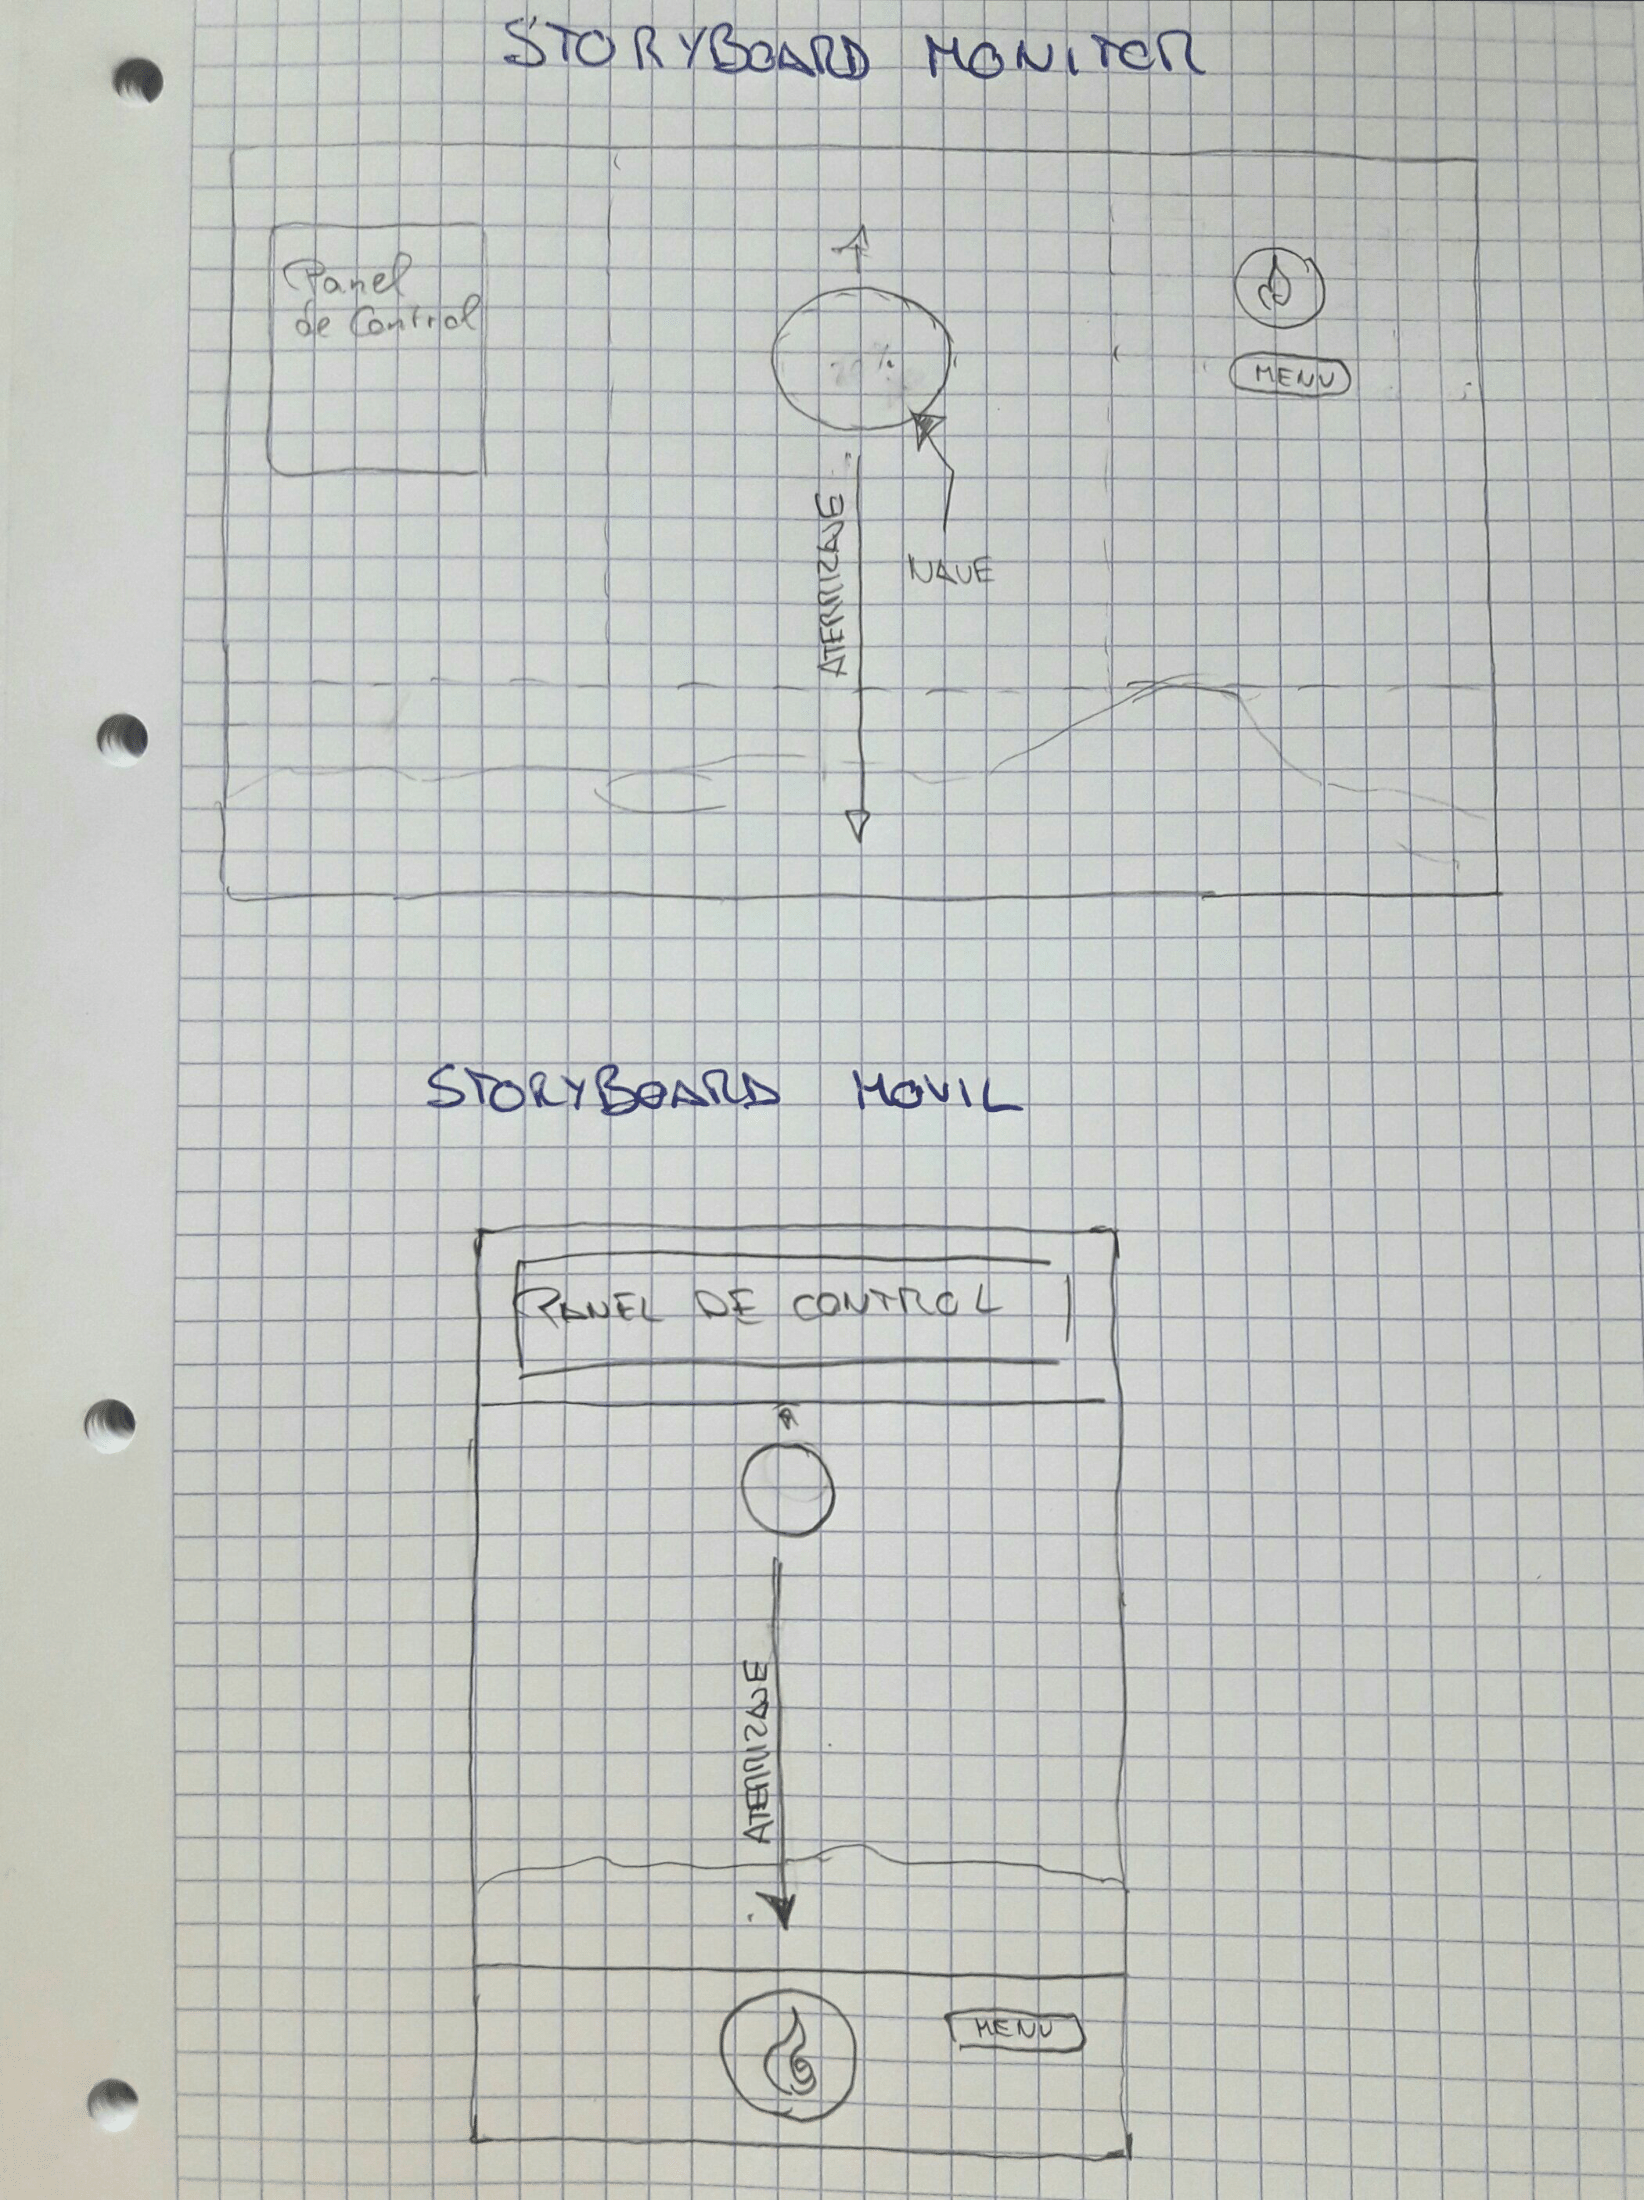 STORYBOARD MONITOR
Panel
de Control
MENU
ATERRIZAJE
NAVE
STORYBOARD MOVIL
PANEL DE CONTROL
ATERRIZAJE
MENU